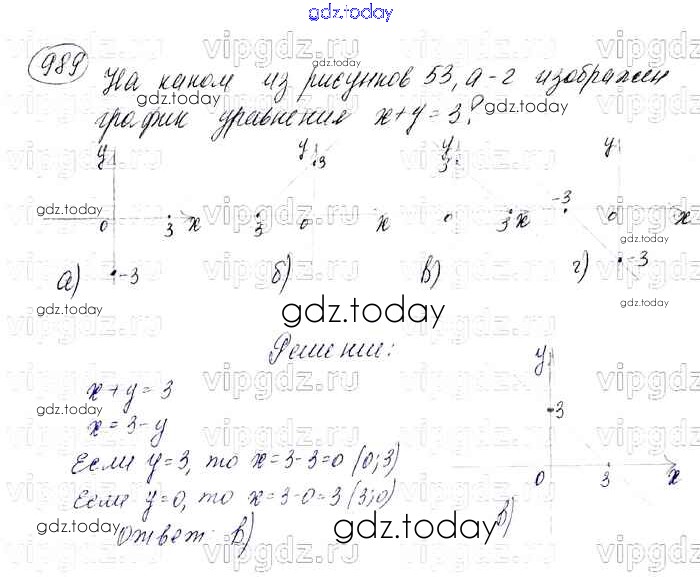 gdz.today
989
На каком из рисунков 53, а-г изображен
gdz.today
график уравнения x+y=3?
y y 3 y 3 y
gdz.today
0 3 x 3 0 x 0 3 x -3 0 x
gdz.today
а) -3 б) в) г) -3
gdz.today
gdz.today
Решение:
vipgdz.ru
y
x+y=3
gdz.today
3
x=3-y
Если y=3, то x=3-3=0 (0;3)
0 3 x
Если y=0, то x=3-0=3 (3;0)
gdz.today
в)
Ответ: в)
gdz.today